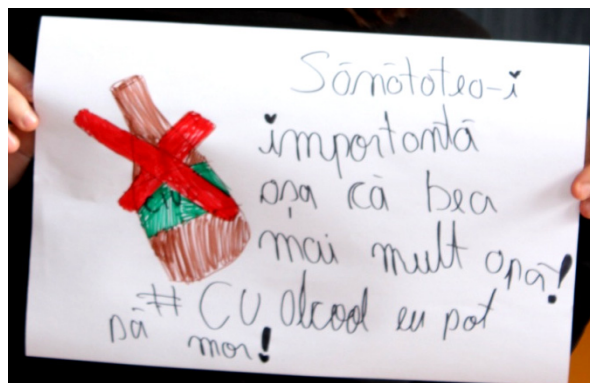 Sănătatea-i
importantă
așa că bea
mai mult apă!
# CU alcool eu pot
să mor!